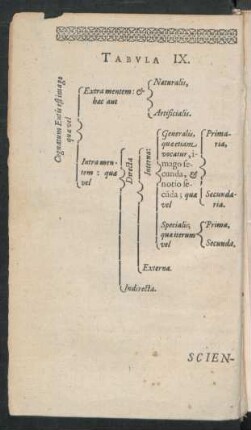 TABVLA IX.
Cognatum Entis est imago
quæ vel
Extra mentem: &
hæc aut
Naturalis,
Artificialis.
Intra men-
tem: quæ
vel
Directa
Internæ:
Generalis,
quæ etiam
vocatur, i-
mago se-
cunda, &
notio se-
cūda; quæ
vel
Prima-
ria,
Secunda-
ria.
Specialis,
quæ iterum
vel
Prima,
Secunda,
Externæ.
Indirecta.
SCIEN-